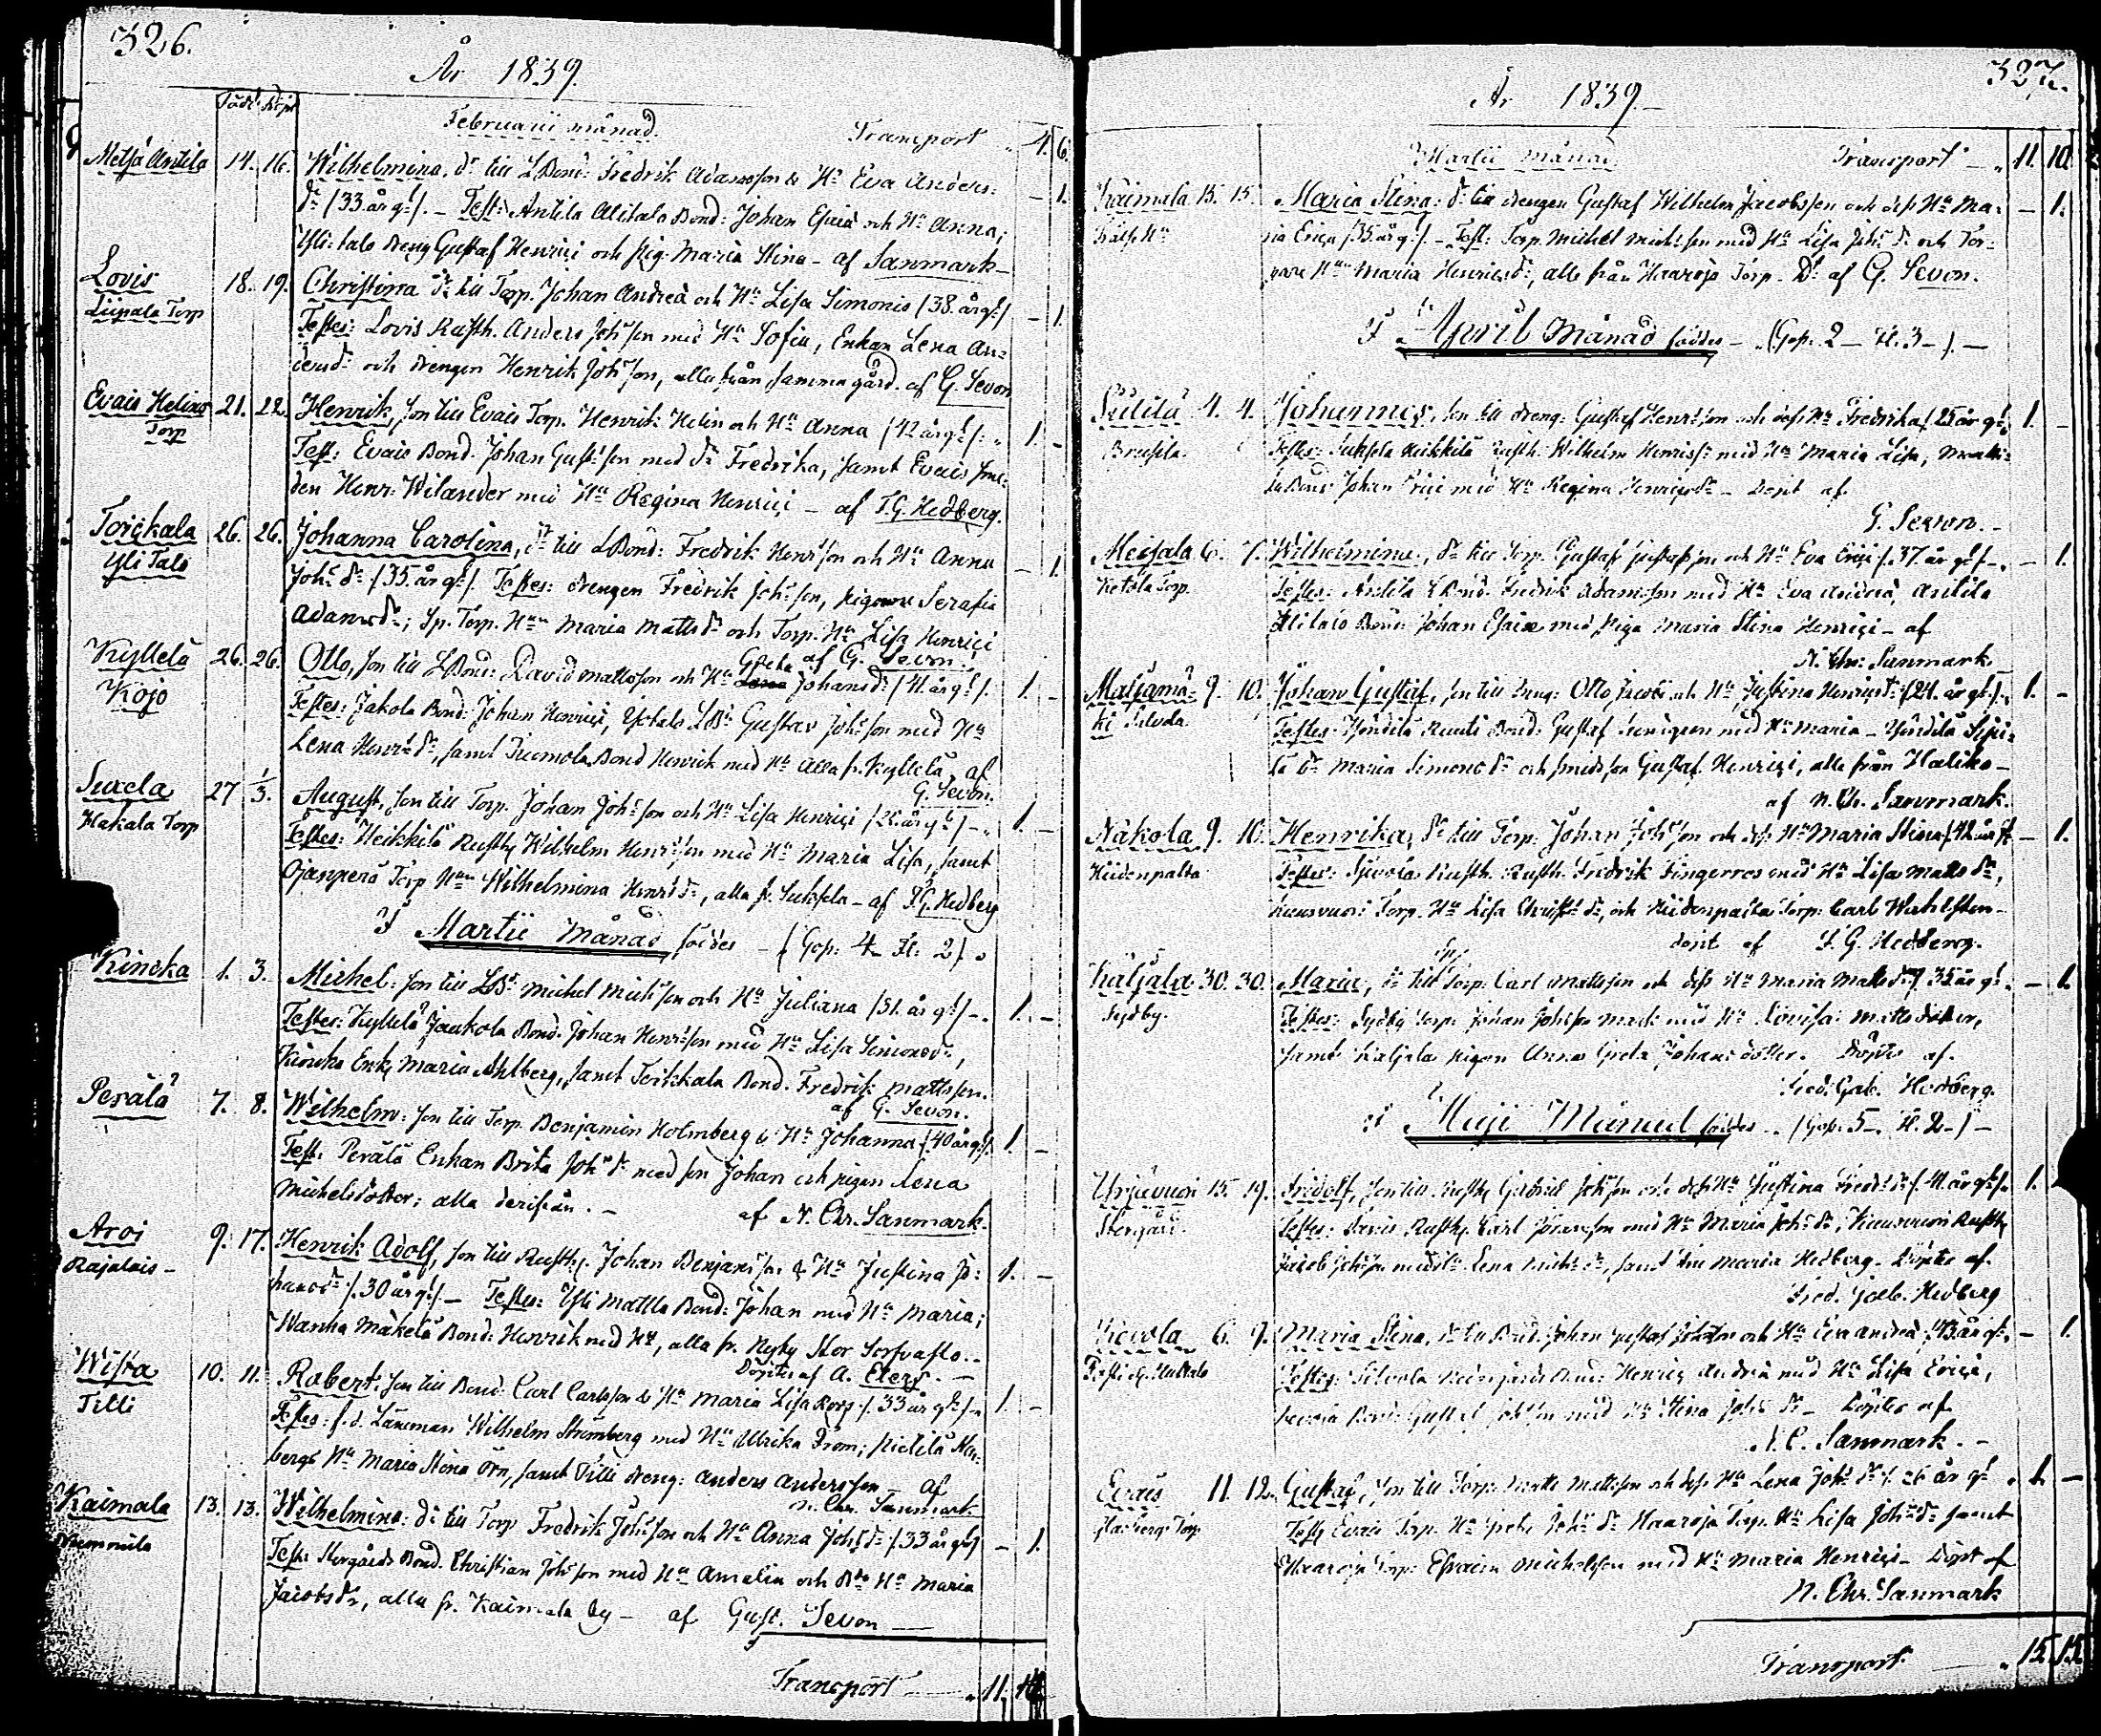 326.
År 1839.
Född. Döpt.
Februarii månad. Transport 4. 6.
Metsä Antila 14. 16. Wilhelmina, dr till LBond: Fredrik Adamsson & Hu Eva Anders:
dr /33 år gl/. — Test: Antila Alitalo Bond: Johan Esaiæ och Hu Anna,
Yli-talo dreng Gustaf Henrici och pig. Maria Stina — af Sanmark — 1.
Lovis 18. 19. Christina dr till Torp. Johan Andreæ och Hu Lisa Simonis /38. år gl/ — 1.
Liipala Torp Testes: Lovis Rusth. Anders Johsson med Hu Sofia, Enkan Lena An:
dersdr och drengen Henrik Johsson, alla från samma gård. af G. Sevon
Evais Helins 21. 22. Henrik, son till Evais Torp. Henrik Helin och Hu Anna /42 år gl/: 1. —
Torp Test: Evais Bond. Johan Gustsson med dr Fredrika, samt Evais Sme:
den Henr: Wilander med Hu Regina Henrici — af F. G. Hedberg.
Toickala 26. 26. Johanna Carolina, dr till LBond: Fredrik Henrsson och Hu Anna — 1.
Yli Talo Johs dr /35. år gl/. Testes: drengen Fredrik Johsson, pigorne Serafia
Adamsdr; Sp. Torp. Hun Maria Mattsdr och Torp. Hu Lisa Henrici
af G. Sevon.
Kyllelä 26. 26. Otto, son till LBond: David Mattsson och Hu Greta Johansdr /41. år gl/. 1. —
Kojo Testes: Jakola Bond: Johan Henrici, Ylötalo LBd Gustav Johsson med Hu
Lena Henrsdr, samt Tuomola Bond Henrik med Hu alla fr. Kyllelä, af
G. Sevon.
Suxela 27 1/3. August, son till Torp. Johan Johsson och Hu Lisa Henrici /28. år gl/ — 1. —
Hakala Torp Testes: Heikkilä Rusth. Wilhelm Henrsson med Hu Maria Lisa, samt
Ojanperä Torp Hun Wilhelmina Henrsdr, alla fr. Suksela — af F. G. Hedberg
I Martii månad föddes — (Gop: 4 — Fl: 2).
Kincka 1. 3. Michel: son till LBd Michel Michsson och Hu Juliana /31. år gl/ — 1. —
Testes: Kyllelä Jaakola Bond. Johan Henrsson med Hu Lisa Simonsdr,
Kincka Enk. Maria Ahlberg, samt Toikkala Bond. Fredrik Mattsson.
af G. Sevon.
Perälä 7. 8. Wilhelm: son till Torp. Benjamin Holmberg & Hu Johanna /40 år gl/. 1. —
Test. Perälä Enkan Brita Johsdr med son Johan och pigan Lena
Michelsdotter; alla derifrån. — af N. Chr. Sanmark.
Aroi 9. 17. Henrik Adolf, son till Rusth. Johan Benjamsson & Hu Justina Jo: 1. —
Rajalais — hansdr /. 30 år gl/. — Testes: Yli Mattla Bond: Johan med Hu Maria;
Wanha Mäkelä Bond: Henrik med Hu, alla fr. Nyky Stor Sorfvasto. —
Döpt af A. Elers. —
Wista 10. 11. Robert, son till Bond: Carl Carlsson & Hu Maria Lisa Roos /. 33 år gl/ 1. —
Tilli Testes: f.d. Länsman Wilhelm Strömberg med Hu Ullrika From; Pietilä
bergs Hu Maria Stina Örn, samt Tilli dreng: Anders Andersson — af
N. Chr. Sanmark.
Kaimala 13. 13. Wilhelmina: dr till Torp Fredrik Johsson och Hu Anna Johsdr /. 33 år gl/ — 1.
Nummila Test: Storgårds Bond. Christian Johsson med Hu Amalia och Dto Hu Maria
Jacobsdr, alla fr. Kaimala by — af Gust. Sevon —
Transport — 11. 10.
327.
År 1839. —
Martii månad. Transport — 11. 10.
Kaimala 15. 15. Maria Stina: dr till drengen Gustaf Wilhelm Jacobsson och dess Hu Ma: — 1.
ria Erici /35. år gl/. — Test: Torp. Michel Michsson med Hu Lisa Johsdr och Tor:
pare Hun Maria Henricsdr, alla från Haaroja Torp. Dt af G. Sevon.
I April Månad föddes — (Gop. 2 — Fl. 3 —). —
4. 4. Johannes, son till dreng: Gustaf Henrsson och dess Hu Fredrika /25 år gl/ 1. —
Brusila. Testes: Suksela Heikkilä Rusth. Wilhelm Henrss: med Hu Maria Lisa,
Bond: Johan med Hu Regina Henricsdr — Döpt af
G. Sevon. —
Meisala 6. 7. Wilhelmina, dr till Torp. Gustaf Gustafsson och Hu Eva Erici /. 37. år gl/ — 1.
Ketola Torp. Testes: Antila LBond. Fredrik Adamsson med Hu Eva Andreæ, Antila
Alitalo Bond: Johan Esaiæ med Piga Maria Stina Henrici — af
N. Chr: Sanmark.
Maljamä: 9. 10. Johan Gustaf, son till Otto Jacobi och Hu Justina Henricsdr /24. år gl/. 1. —
ki Testes: Bond: Gustaf Henricsson med Hu Maria —
Maria Simonsdr och smedsson Gustaf Henrici, alla från Haliko —
af N. Ch. Sanmark.
Nakola 9. 10. Henrika, dr till Torp. Johan Johsson och dess Hu Maria Stina /42 år gl/ — 1.
Hiidenpalta Testes: Rusth. Fredrik Fingerroos med Hu Lisa Mattsdr,
Kuusvuori Torp. Hu Lisa Christsdr, och Hiidenpalta Torp: Carl Wahlsten —
döpt af F. G. Hedberg.
Kaljala 30. 30. Maria, dr till Sp. Torp. Carl Mattsson och dess Hu Maria Mattsdr /. 35 år gl. — 1.
Sydby. Testes: Sydby Torp: Johan Johsson med Hu Lovisa Mattsdotter,
samt Kaljala pigan Anna Greta Johansdotter. Döpt af.
Fred. Gab. Hedberg.
I Maji Månad föddes — (Gop. 5 — Fl. 2 —) —
15. 19. Fridolf, son till Rusth. Gabriel Johsson och dess Hu Justina Fredrsdr /. 41. år gl/. 1.
Storgård. Testes: Rusth. Carl Johansson med Hu Maria Johsdr, Kuusvuori Rusth.
Jacob Johsson med Lena Michsdr, samt Maria Hedberg. Döpt af.
Fred. Gab. Hedberg
6. 9. Maria Stina, dr till Bond. Johan Gustaf Johsson och Hu Eva Andreæ /43 år gl. — 1.
Testes: Bond: Henric Andreæ med Hu Lisa Erici,
Bond: Gustaf Johsson med Hu Stina Johsdr — Döpt af
N. C. Sanmark. —
Evais 11. 12. Gustaf, son till Torp. Matts Mattsson och dess Hu Lena Johsdr /. 26 år gl. 1. —
Test. Evais Torp. Hu Greta Johsdr Haaroja Torp. Hu Lisa Johsdr samt
Haaroja Torp. Efraim Michelsson med Hu Maria Henrici — Döpt af
N. Chr. Sanmark
Transport — 15. 15.